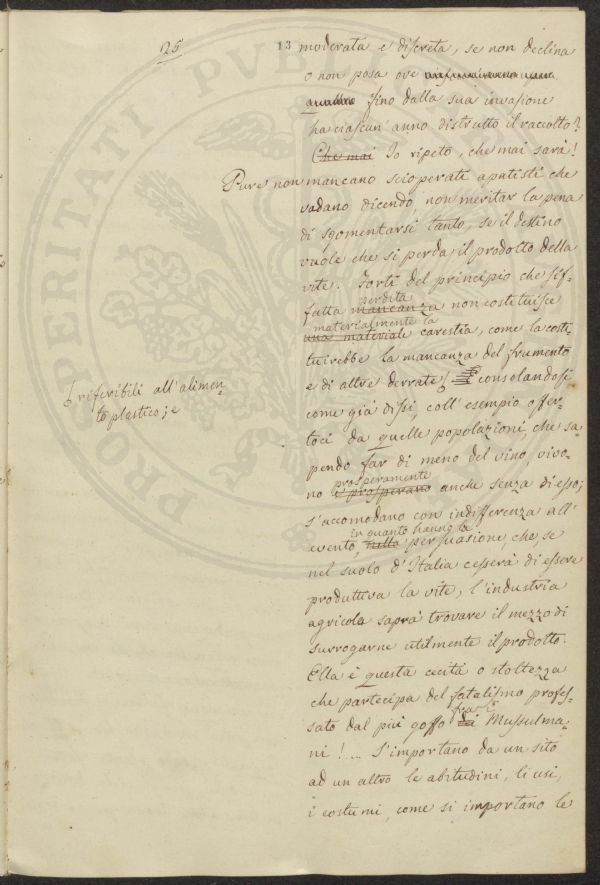 25
13
moderata e discreta, se non declina
o non posa ove
quattro fino dalla sua invasione
ha ciascun' anno distrutto il raccolto?
Che mai Io ripeto, che mai sarà!
Pure non mancano scioperati apatisti che
vadano dicendo, non meritar la pena
di sgomentarsi tanto, se il destino
vuole che si perda il prodotto della
vite. Forti del principio che sif-
perdita
fatta mancanza non costituisce
materialmente la
una materiale carestia, come la costi
tuirebbe la mancanza del frumento
e di altre derrate consolandosi
riferibili all' alimen-
to plastico; e
come già dissi, coll' esempio offer-
toci da quelle popolazioni, che sa-
pendo far di meno del vino, vivo-
prosperamente
no e prosperano anche senza di esso;
s'accomodano con indifferenza all'
in quanto hanno la
evento, nella persuasione, che, se
nel suolo d' Italia cesserà di essere
produttiva la vite, l' industria
agricola saprà trovare il mezzo di
surrogarne utilmente il prodotto.
Ella è questa cecità o stoltezza
che partecipa del fatalismo profes-
fra i
sato dal più goffo dei Mussulma-
ni!... S'importano da un sito
ad un altro le abitudini, li usi,
i costumi, come si importano le
PROSPERITATI PVBLICAE